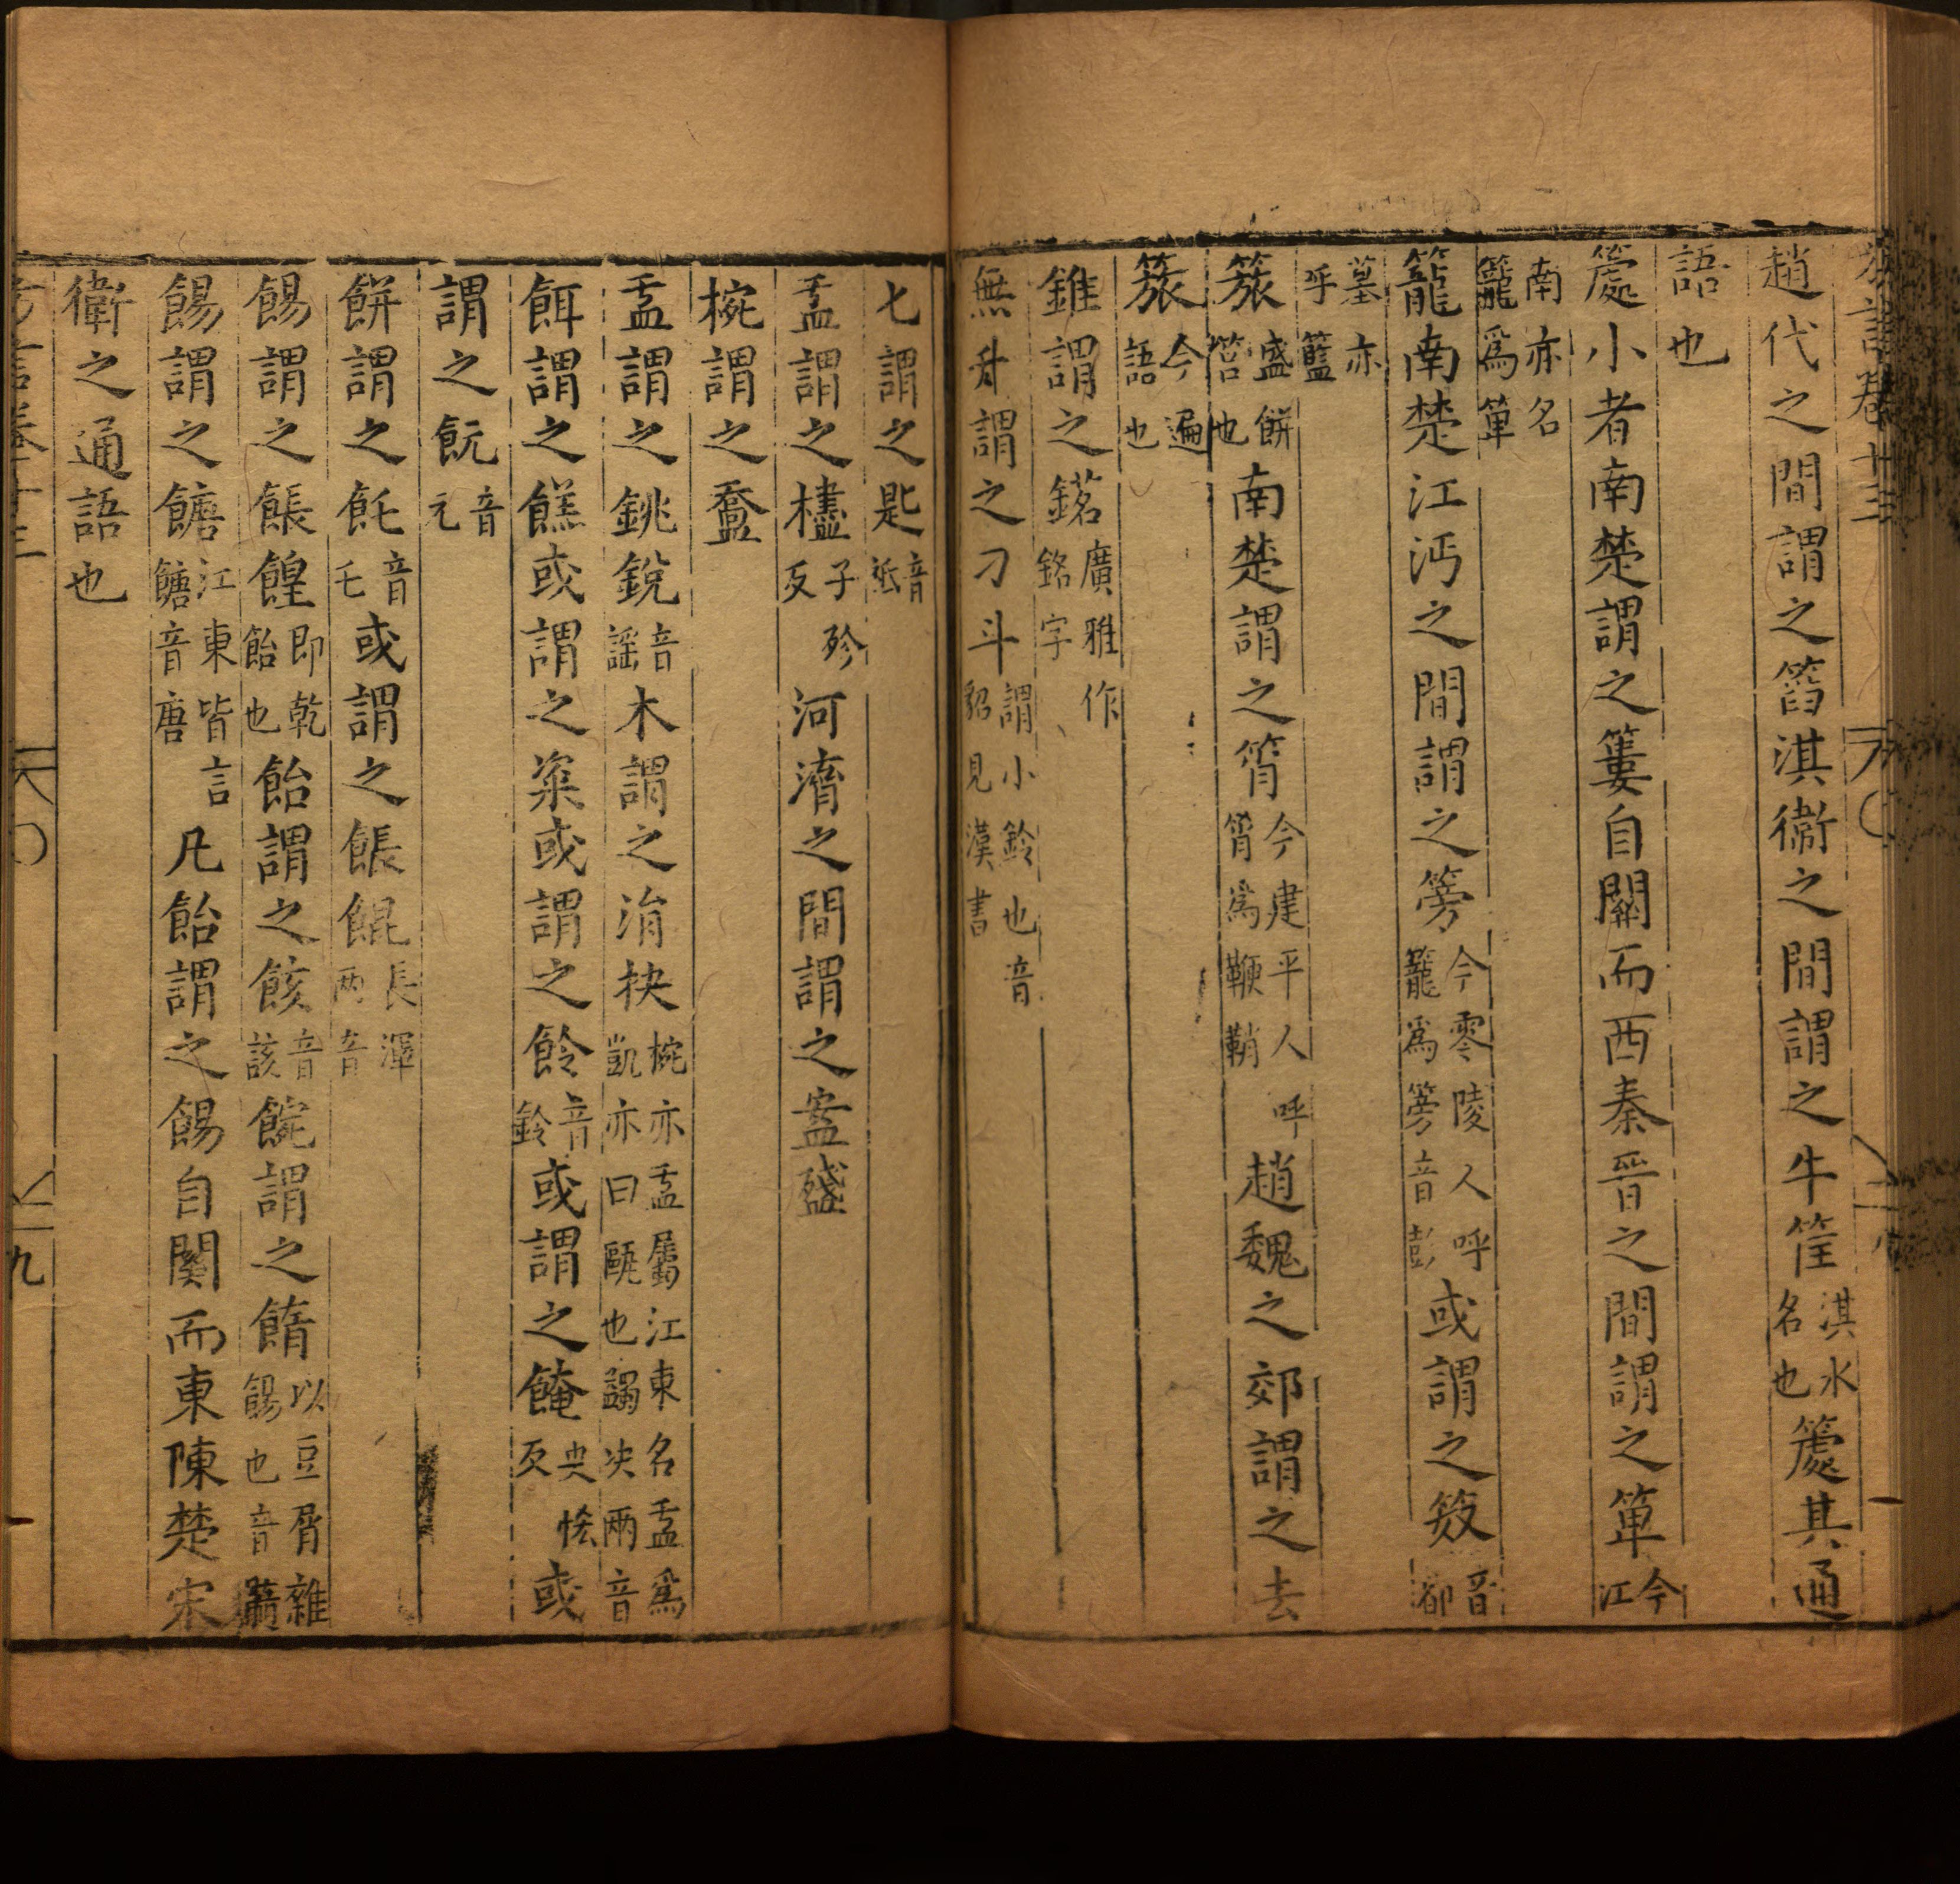 趙代之間謂之筥淇衛之間謂之牛筐淇水名也簏其通
語也
簏小者南楚謂之簍自關而西秦晉之間謂之箄今江
南亦名籠為箄
籠南楚江沔之間謂之篣今零陵人呼籠為篣音彭或謂之笯音都
墓亦呼籃
簇盛餅筥也南楚謂之筲今建平人呼筲為鞭鞘趙魏之郊謂之去
簇今遍語也
錐謂之鍣廣雅作銘字
無升謂之刁斗謂小鈴也音貂見漢書
匕謂之匙音祗
盂謂之㯸子殄反河濟之間謂之盝
椀謂之
盂謂之銚銳音謠木謂之涓抉椀亦盂屬江東名盂為凱亦亦曰甌也蠲決兩音
餌謂之餻或謂之粢或謂之䬧音鈴或謂之䭆央怯反或
謂之䬧音元
餅謂之飥音乇或謂之餦餛長渾兩音
餳謂之餦餭即乾飴也飴謂之䬵音該䬪謂之䭉以豆屑雜餳也音
餳謂之餹江東皆言餹音唐凡飴謂之餳自關而東陳楚宋
衛之通語也
九